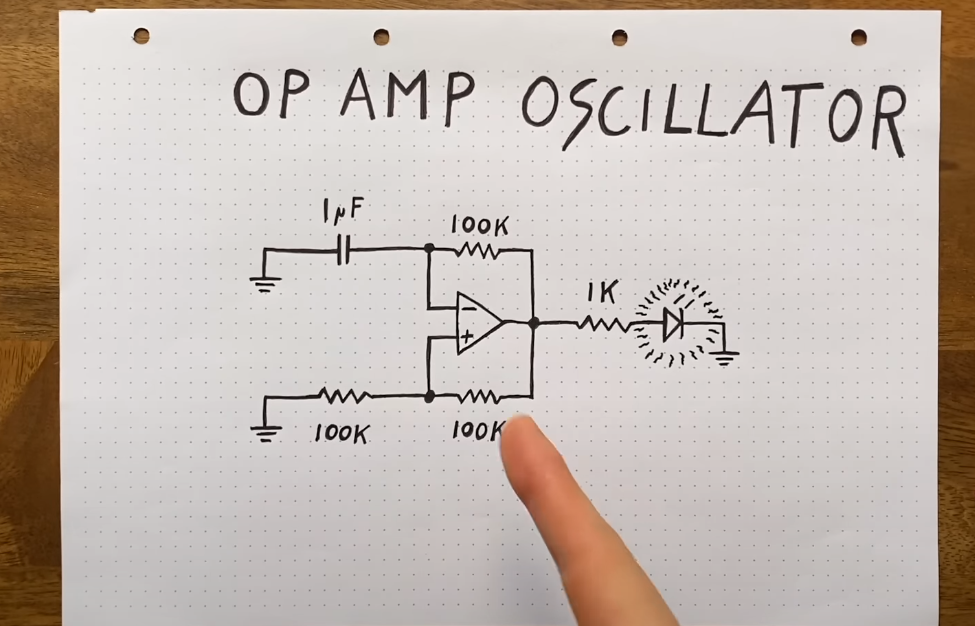 OP AMP OSCILLATOR
1µF
100K
1K
−
+
100K
100K